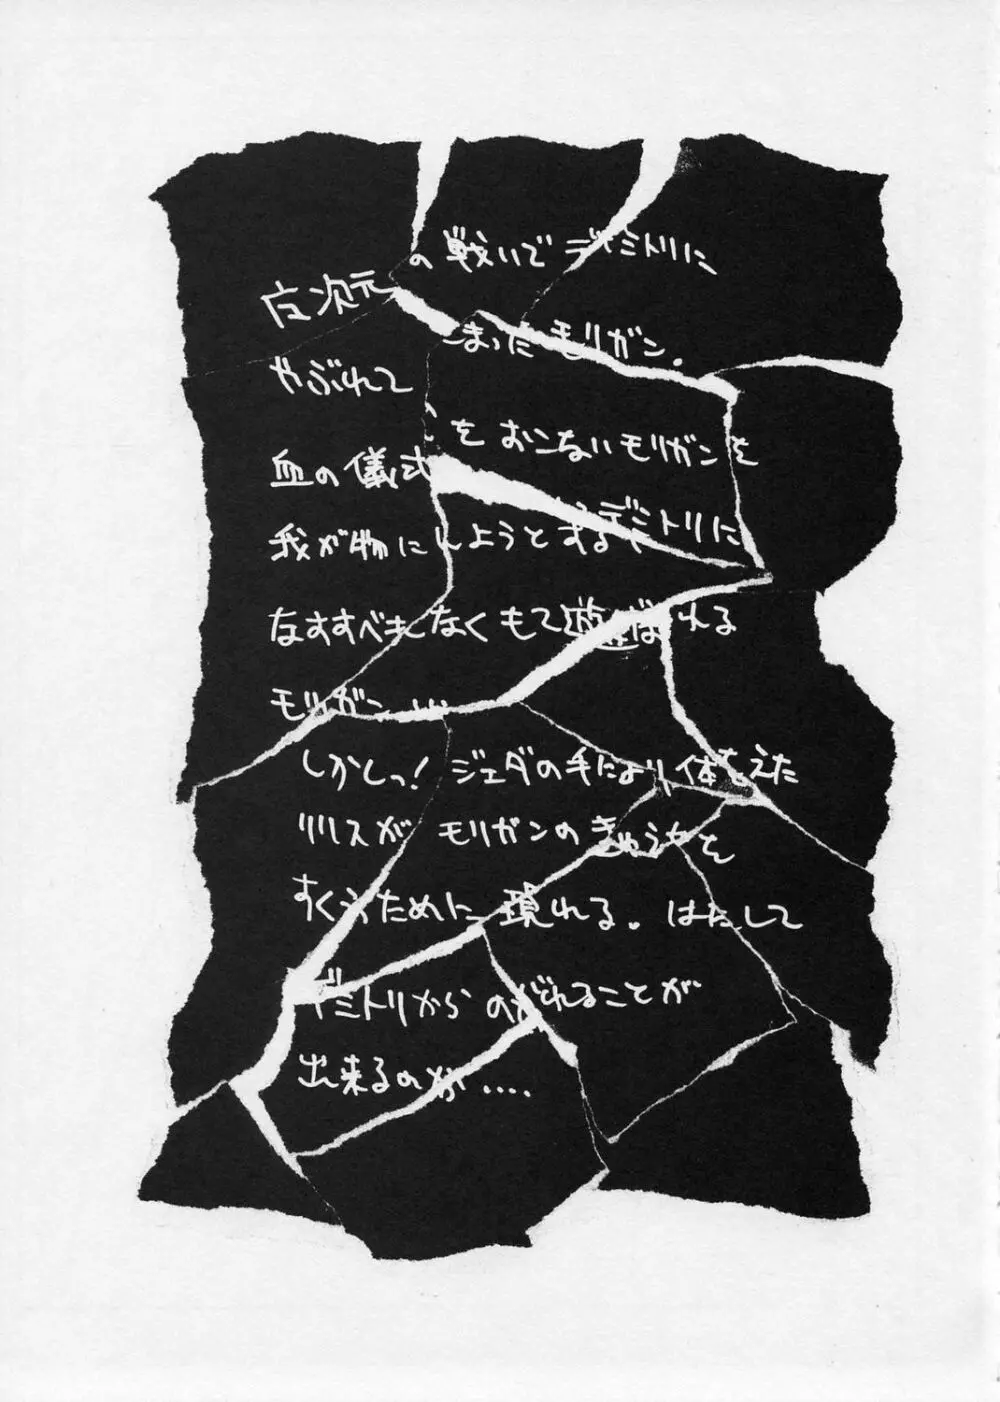 左次元の戦いでデイミトリに
やぶれてしまったモリガン。
血の儀式をおこないモリガンを
我が物にしようとするデミトリに
なすすべもなくもて遊ばれる
モリガン….
しかしっ!ジェダの手により体をえた
リリスがモリガンのきゅうちを
すくうために現れる。はたして
デミトリからのがれることが
出来るのか....